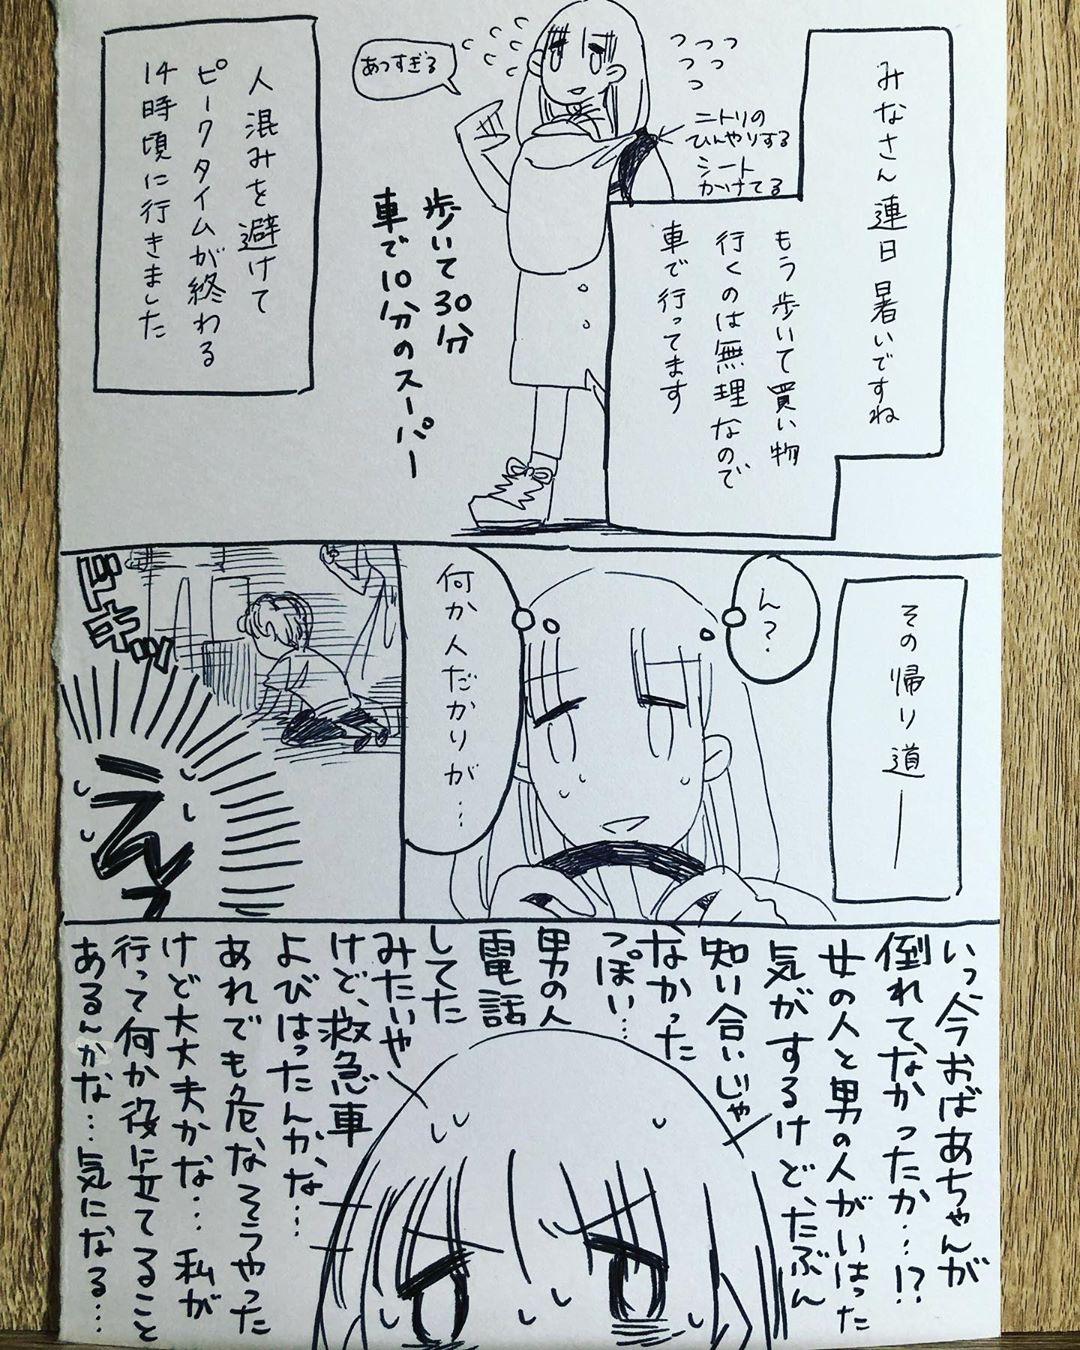 みなさん連日暑いですね
もう歩いて買い物
行くのは無理なので
車で行ってます
ニトリの
ひんやりする
シート
かけてる
あつすぎる
歩いて30分
車で10分のスーパー
人混みを避けて
ピークタイムが終わる
14時頃に行きました
その帰り道ー
ん?
何か人だかりが…
ドキッ
えっ
いっ今おばあちゃんが
倒れてなかったか…!?
女の人と男の人がいはった
気がするけど、たぶん
知い合いじゃ
なかった
っぽい…
男の人
電話
してた
みたいや
けど、救急車
よびはったんかな…
あれでも危なそうやった
けど大丈夫かな…私が
行って何か役に立てること
あるんかな…気になる…